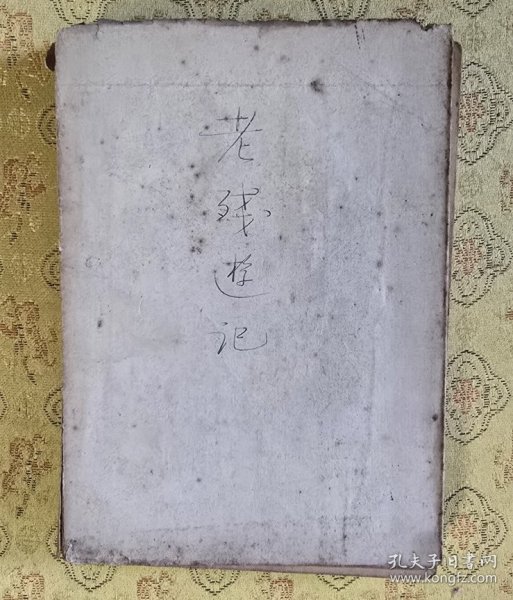 老残遊记
孔夫子旧书网
www.kongfz.com